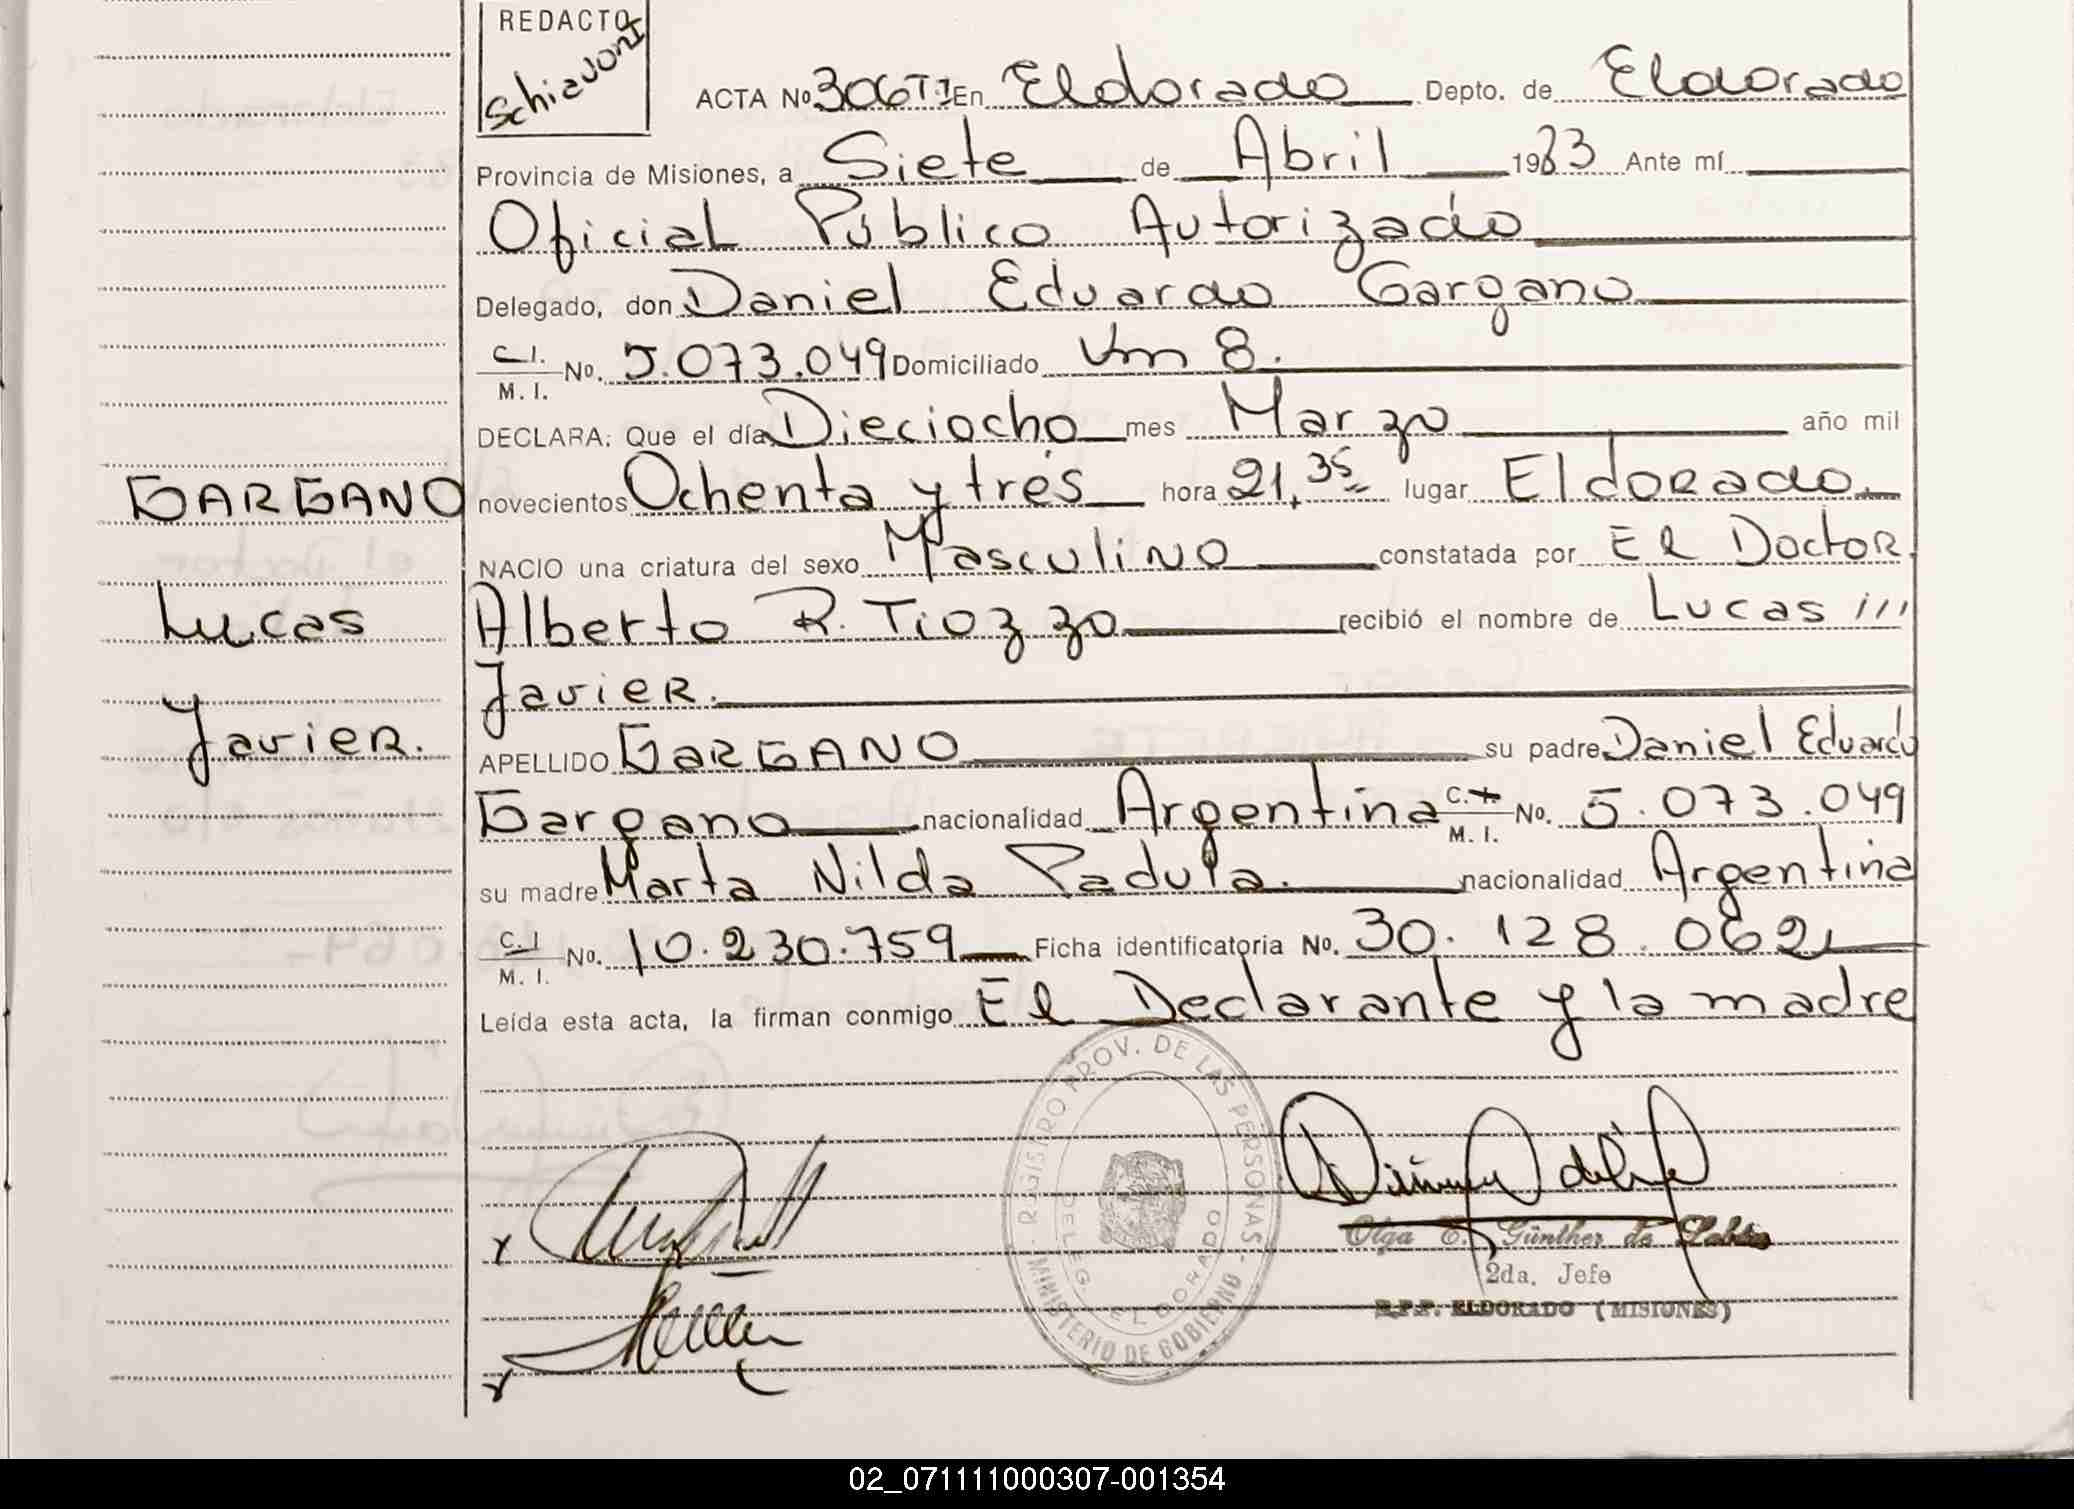 REDACTO
Schiavoni
ACTA Nº 306 T I En Eldorado Depto. de Eldorado
Provincia de Misiones, a Siete de Abril 1983 Ante mí
Oficial Público Autorizado
Delegado, don Daniel Eduardo Gargano
C.I. / M. I. Nº. 5.073.049 Domiciliado Km 8.
DECLARA: Que el día Dieciocho mes Marzo año mil
GARGANO
novecientos Ochenta y trés hora 21,35 lugar Eldorado.
NACIO una criatura del sexo Masculino constatada por El Doctor
Lucas
Alberto R. Tiozzo recibió el nombre de Lucas ///
Javier.
Javier.
APELLIDO GARGANO su padre Daniel Eduardo
Gargano nacionalidad Argentina C.I. / M. I. Nº. 5.073.049
su madre Marta Nilda Padula. nacionalidad Argentina
C.I / M. I. Nº. 10.230.759 Ficha identificatoria Nº. 30.128.062
Leída esta acta, la firman conmigo El Declarante y la madre
REGISTRO PROV. DE LAS PERSONAS - MINISTERIO DE GOBIERNO -
DELEG. ELDORADO
Olga E. Günther de
2da. Jefe
R.P.P. ELDORADO (MISIONES)
02_071111000307-001354